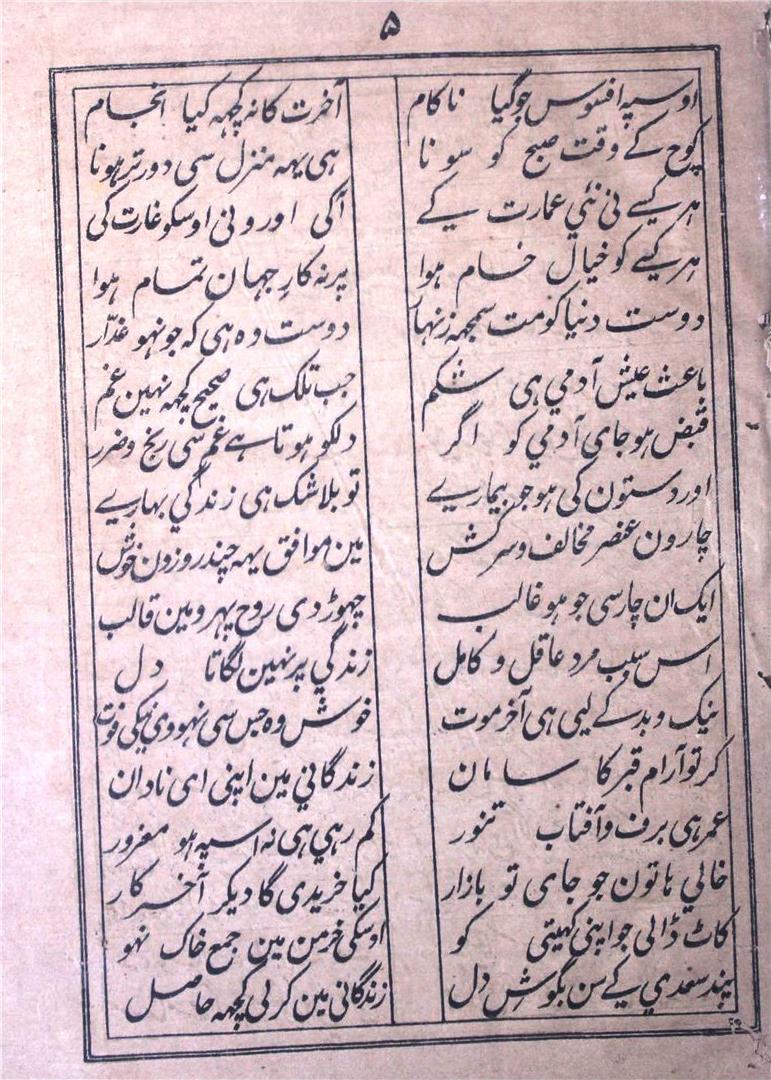 ۵
اوسپہ افسوس جو گیا ناکام آخرت کا نہ کچہہ کیا انجام
کوچ کے وقت صبح کو سونا ہی یہہ منزل سی دور تر ہونا
ہر کسے نی نئي عمارت کے آکی اورونی اوسکو غارت کی
ہر کسے کو خیال خام ہوا پر نہ کار جہان تمام ہوا
دوست دنیا کو مت سمجہہ زنہار دوست وہ ہی کہ جو نہو غدّار
باعث عیش آدمي ہی شکم جب تلک ہی صحیح کچہہ نہین غم
قبض ہو جای آدمي کو اگر دلکو ہوتا ہے غم سی رنج و ضرر
اور دستون کی ہو جو بیماریے تو بلاشک ہی زندگي بہاریے
چارون عنصر مخالف و سرکش مین موافق یہہ چند روزون خوش
ایک ان چار سی جو ہو غالب چہوڑ دی روح پہر وہین قالب
اس سبب مرد عاقل و کامل زندگي پر نہین لگاتا دل
نیک و بد کے لیی ہی آخر موت خوش وہ جس سی نہووی نیکی فوت
کر تو آرام قبر کا سامان زندگاني مین اپنی ای نادان
عمر ہی برف و آفتاب تنور کم رہي ہی نہ اسپہ ہو مغرور
خالي ہاتون جو جای تو بازار کیا خریدی گا دیکر آخر کار
کاٹ ڈالی جو اپنی کہیتی کو اوسکی خرمن مین جمع خاک نہو
پند سعدي کے سن بگوش دل زندگانی مین کر لی کچہہ حاصل